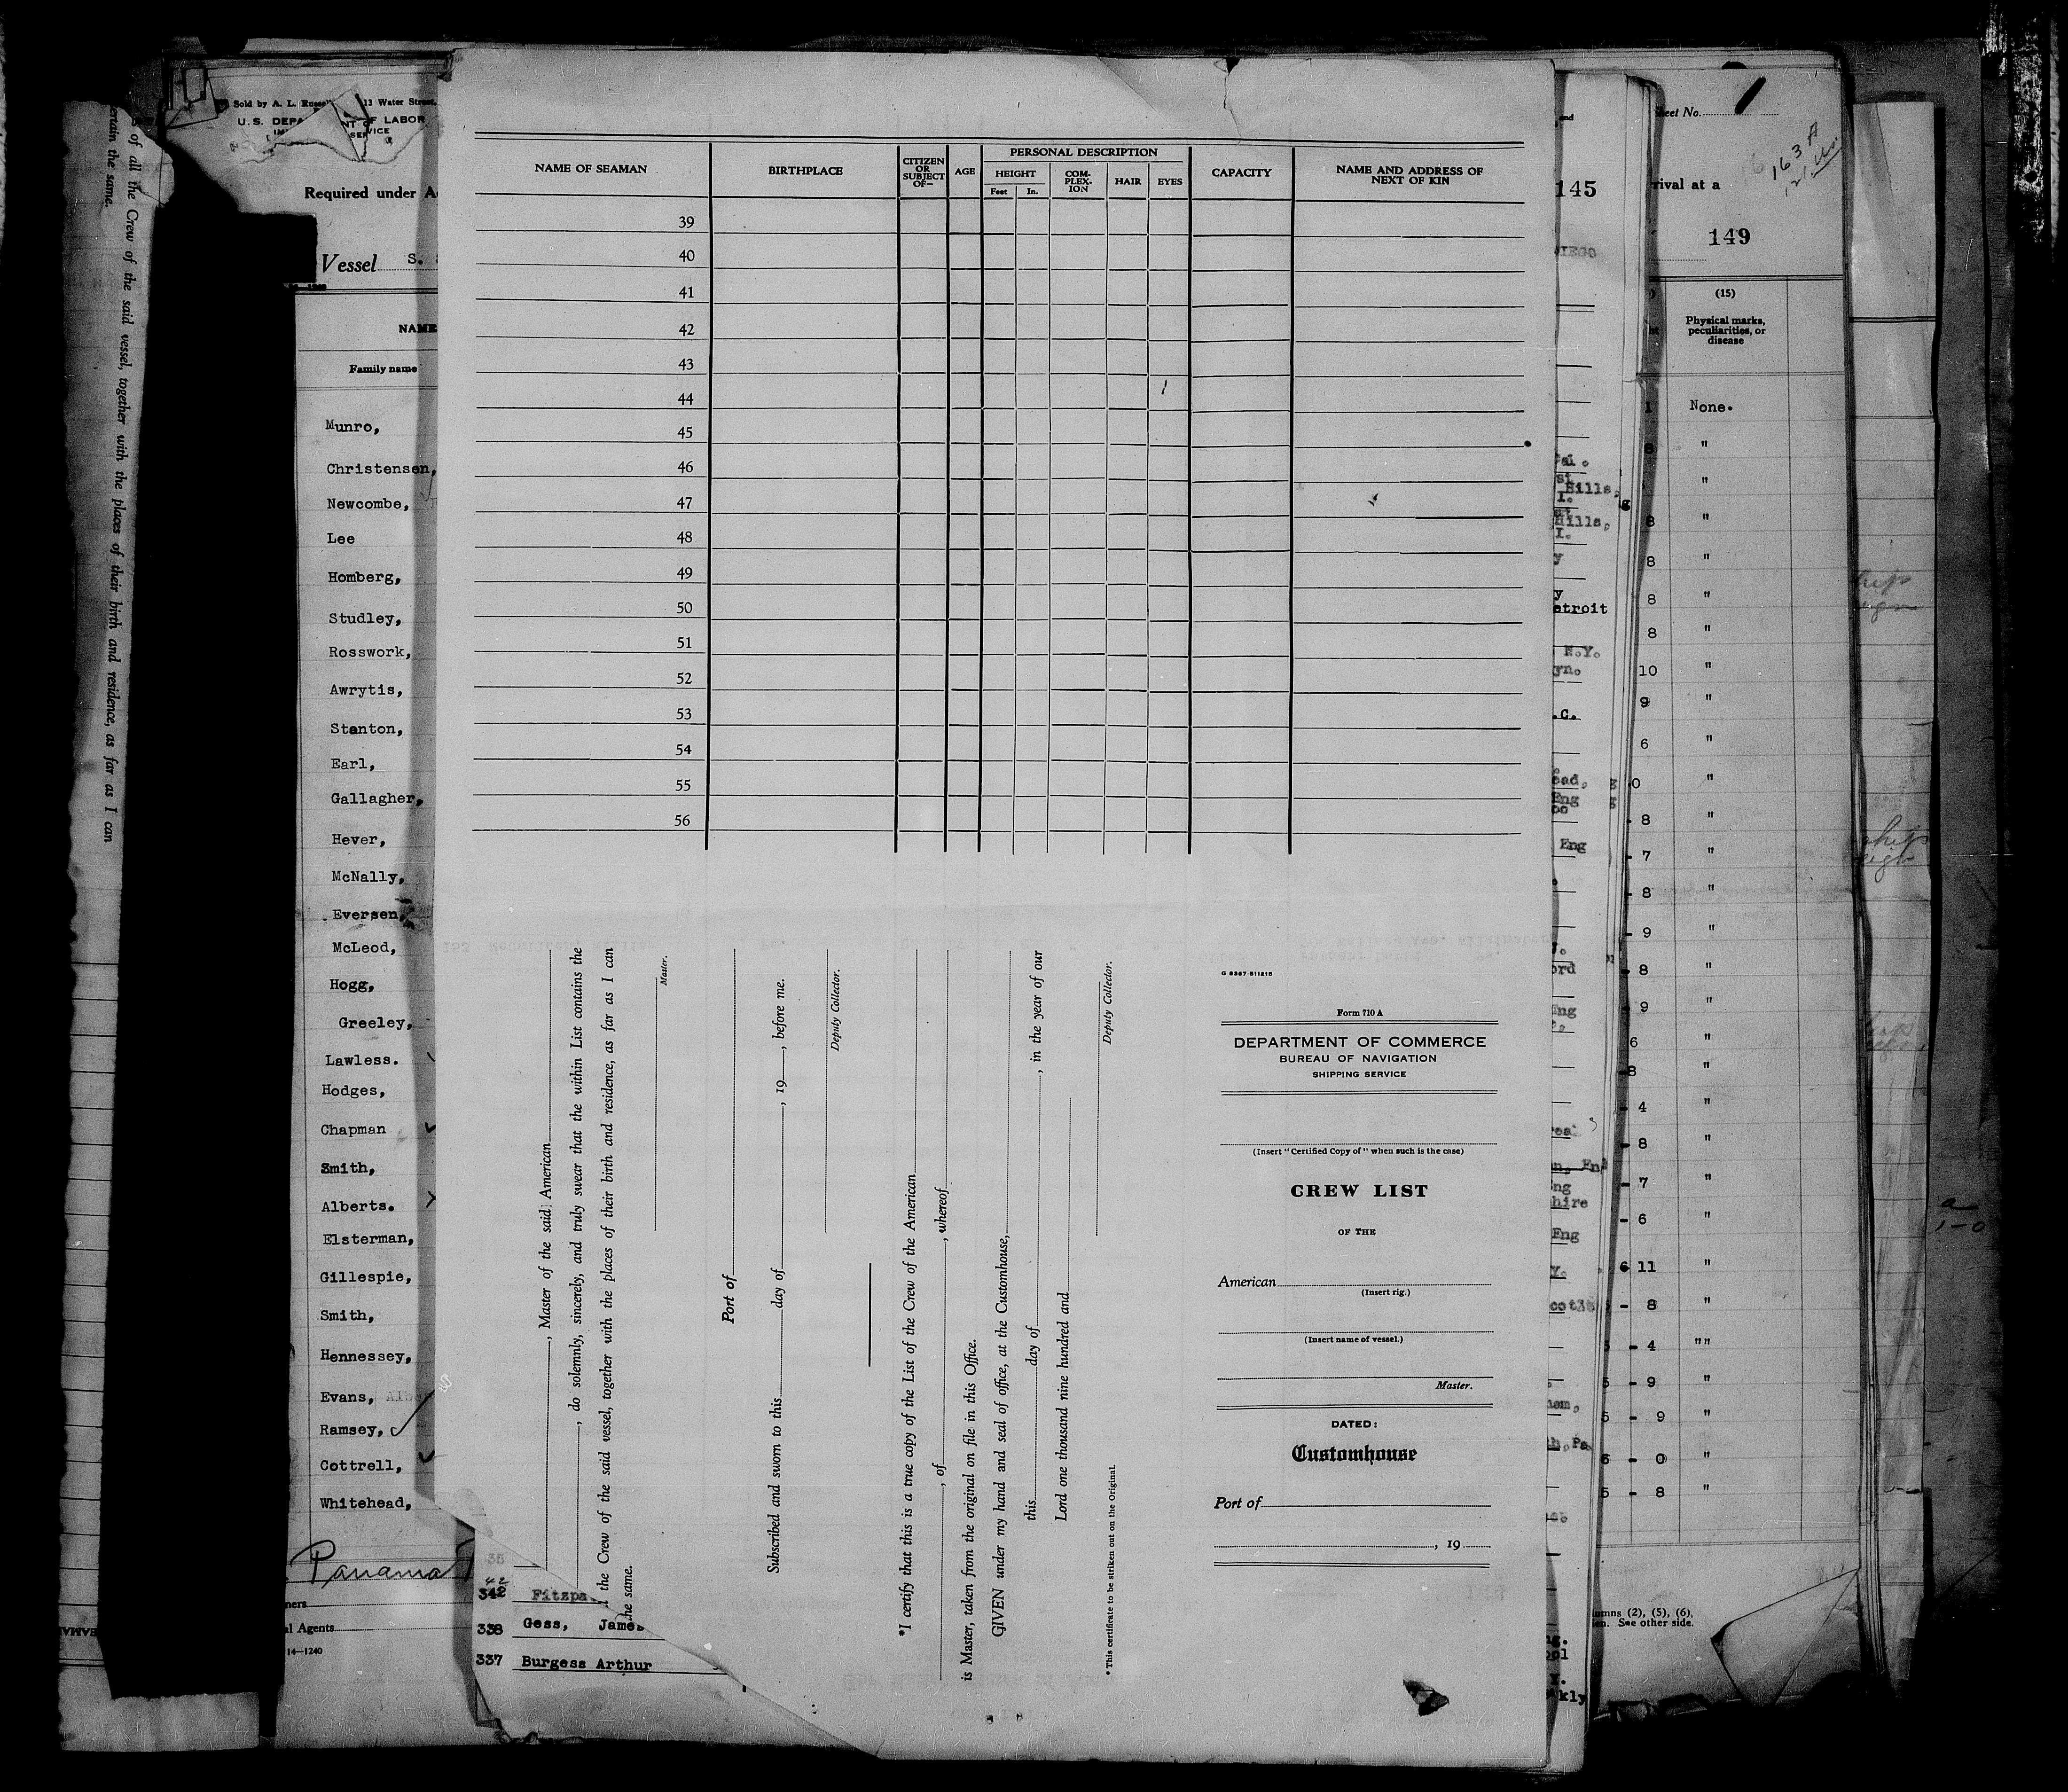 of all the Crew of the said vessel, together with the places of their birth and residence, as far as I can
the same.
Sold by A. L. 13 Water Street.
U.S. OF LABOR
Required under
Vessel S.
NAME
Family name
Munro,
Christensen,
Newcombe,
Lee
Homberg,
Studley,
Rosswork,
Awrytis,
Stanton,
Earl,
Gallagher,
Hever,
McNally,
Eversen,
McLeod,
Hogg,
Greeley,
Lawless.
Hodges,
Chapman
Smith,
Alberts.
Elsterman,
Gillespie,
Smith,
Hennessey,
Evans,
Ramsey,
Cottrell,
Whitehead,
Panama
Agents
14—1240
NAME OF SEAMAN
BIRTHPLACE
CITIZEN OR SUBJECT OF—
AGE
PERSONAL DESCRIPTION
HEIGHT
Feet In.
COM-PLEX-ION
HAIR
EYES
CAPACITY
NAME AND ADDRESS OF NEXT OF KIN
39
40
41
42
43
44
45
46
47
48
49
50
51
52
53
54
55
56
, Master of the said American
, do solemnly, sincerely, and truly swear that the within List contains the
the Crew of the said vessel, together with the places of their birth and residence, as far as I can
the same.
Master.
Port of
Subscribed and sworn to this day of , 19 , before me.
Deputy Collector.
*I certify that this is a true copy of the List of the Crew of the American
, of , whereof
is Master, taken from the original on file in this Office.
GIVEN under my hand and seal of office, at the Customhouse,
this day of , in the year of our
Lord one thousand nine hundred and
Deputy Collector.
*This certificate to be striken out on the Original.
G 8367-511215
Form 710 A
DEPARTMENT OF COMMERCE
BUREAU OF NAVIGATION
SHIPPING SERVICE
(Insert "Certified Copy of" when such is the case)
CREW LIST
OF THE
American
(Insert rig.)
(Insert name of vessel.)
Master.
DATED:
Customhouse
Port of
, 19
35
42
342 Fitzpa
338 Gess, James
337 Burgess Arthur
and
145
IEGO
Hills,
Hills,
I.
etroit
N.Y.
yn.
.C.
ead,
Eng
Eng
ord
Eng
Eng
hire
Eng
Y.
Pa.
Sheet No. 1
163 A
rival at a
149
(15)
Physical marks, peculiarities, or disease
None.
"
8 "
"
8 "
8 "
8 "
8 "
10 "
9 "
6 "
0 "
8 "
7 "
8 "
9 "
8 "
9 "
6 "
8 "
4 "
8 "
7 "
6 "
6 11 "
- 8 "
- 4 ""
- 9 "
5 - 9 "
6 - 0 "
5 - 8 "
umns (2), (5), (6),
en. See other side.